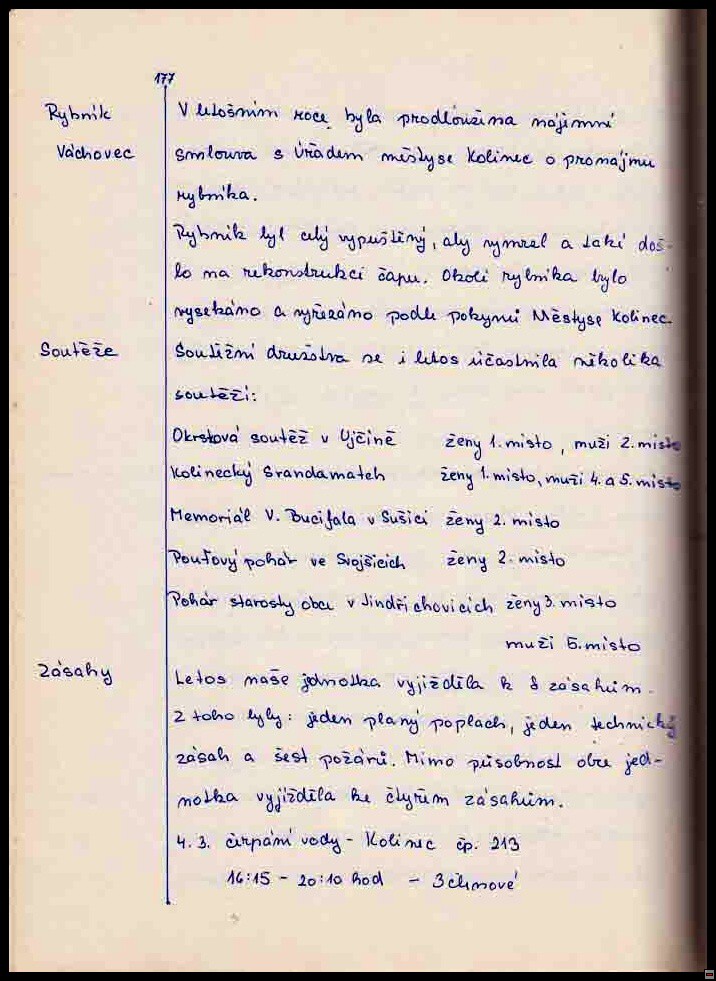 177
Rybník
Váchovec
V letošním roce byla prodloužena nájemní
smlouva s Úřadem městyse Kolinec o pronájmu
rybníka.
Rybník byl celý vypuštěný, aby vymrzl a také doš-
lo na rekonstrukci čapu. Okolí rybníka bylo
vysekáno a vyřezáno podle pokynů Městyse Kolinec.
Soutěže
Soutěžní družstva se i letos účastnila několika
soutěží:
Okrsková soutěž v Ujčíně ženy 1. místo, muži 2. místo
Kolinecký Srandamatch ženy 1. místo, muži 4. a 5. místo
Memoriál V. Bucifala v Sušici ženy 2. místo
Pouťový pohár ve Svojšicích ženy 2. místo
Pohár starosty obce v Jindřichovicích ženy 3. místo
muži 5. místo
Zásahy
Letos naše jednotka vyjížděla k 8 zásahům.
Z toho byly: jeden planý poplach, jeden technický
zásah a šest požárů. Mimo působnost obce jed-
notka vyjížděla ke čtyřem zásahům.
4. 3. čerpání vody - Kolinec čp. 213
16:15 - 20:10 hod - 3 členové